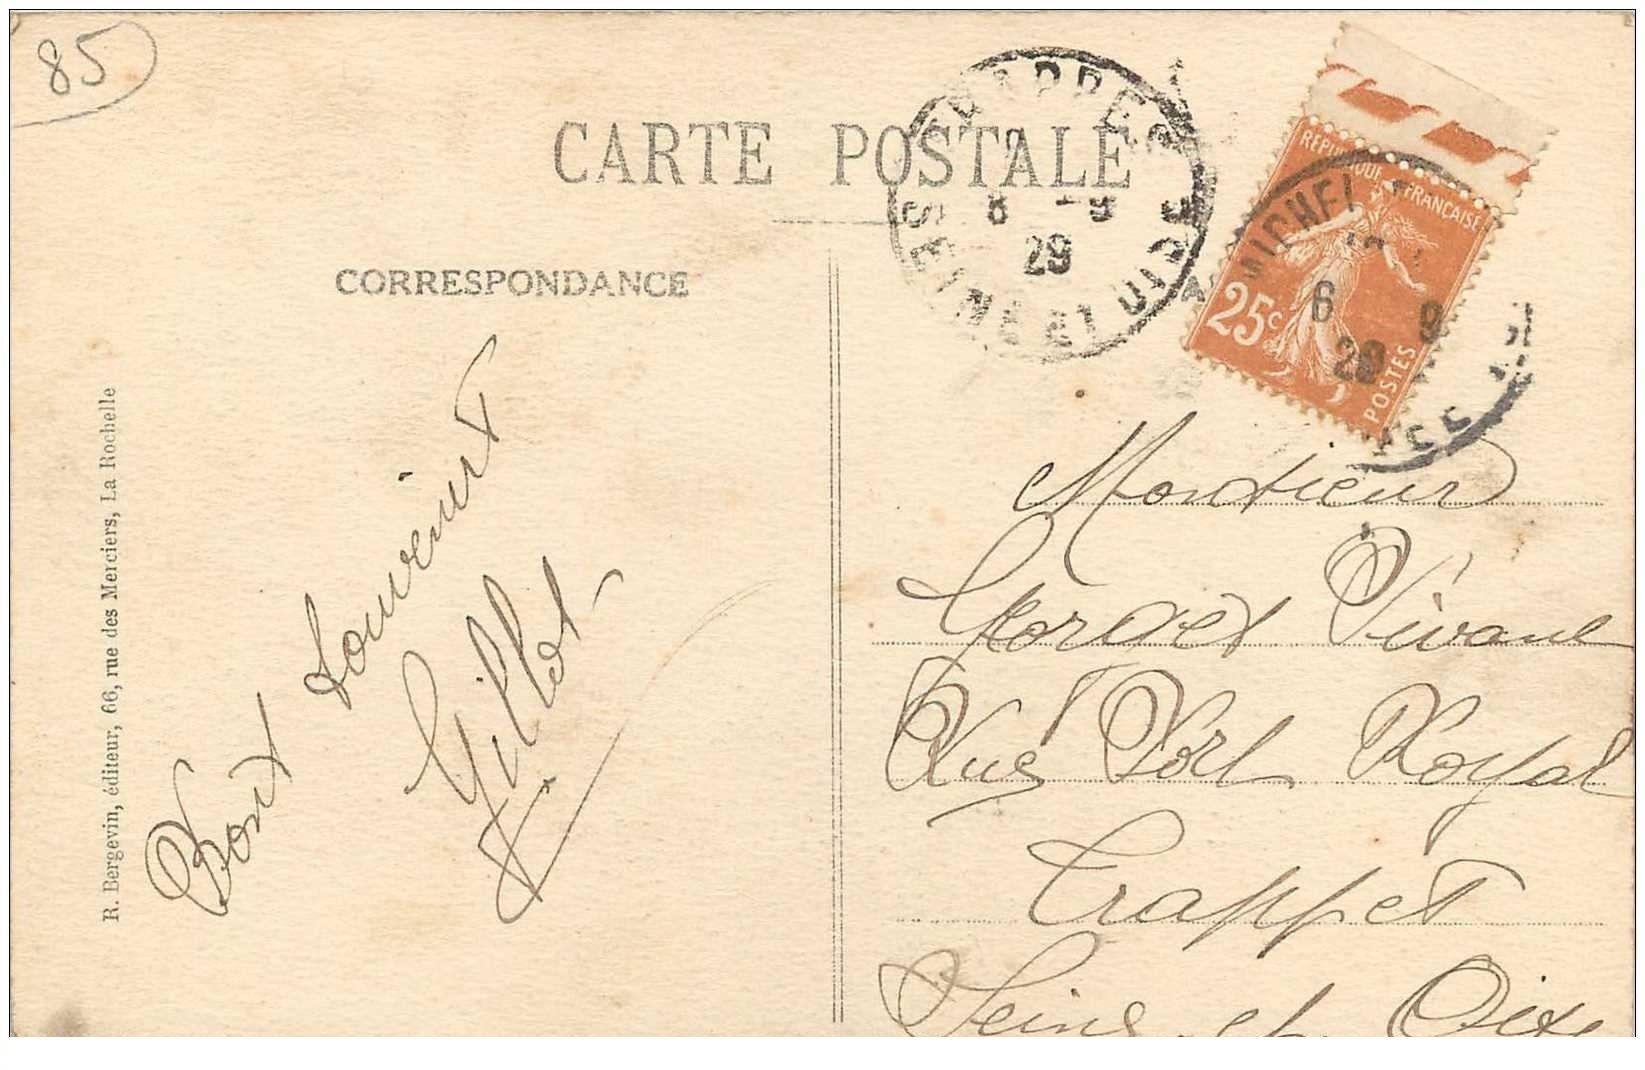 85
CARTE POSTALE
TRAPPES
8 -9
29
SEINE ET OISE
RÉPUBLIQUE FRANÇAISE
25c
POSTES
MICHEL
6 9
29
CORRESPONDANCE
R. Bergevin, éditeur, 66, rue des Merciers, La Rochelle
Bons souvenirs
Gillot
Monsieur
Georges
Rue Port Royal
Trappes
Seine et Oise